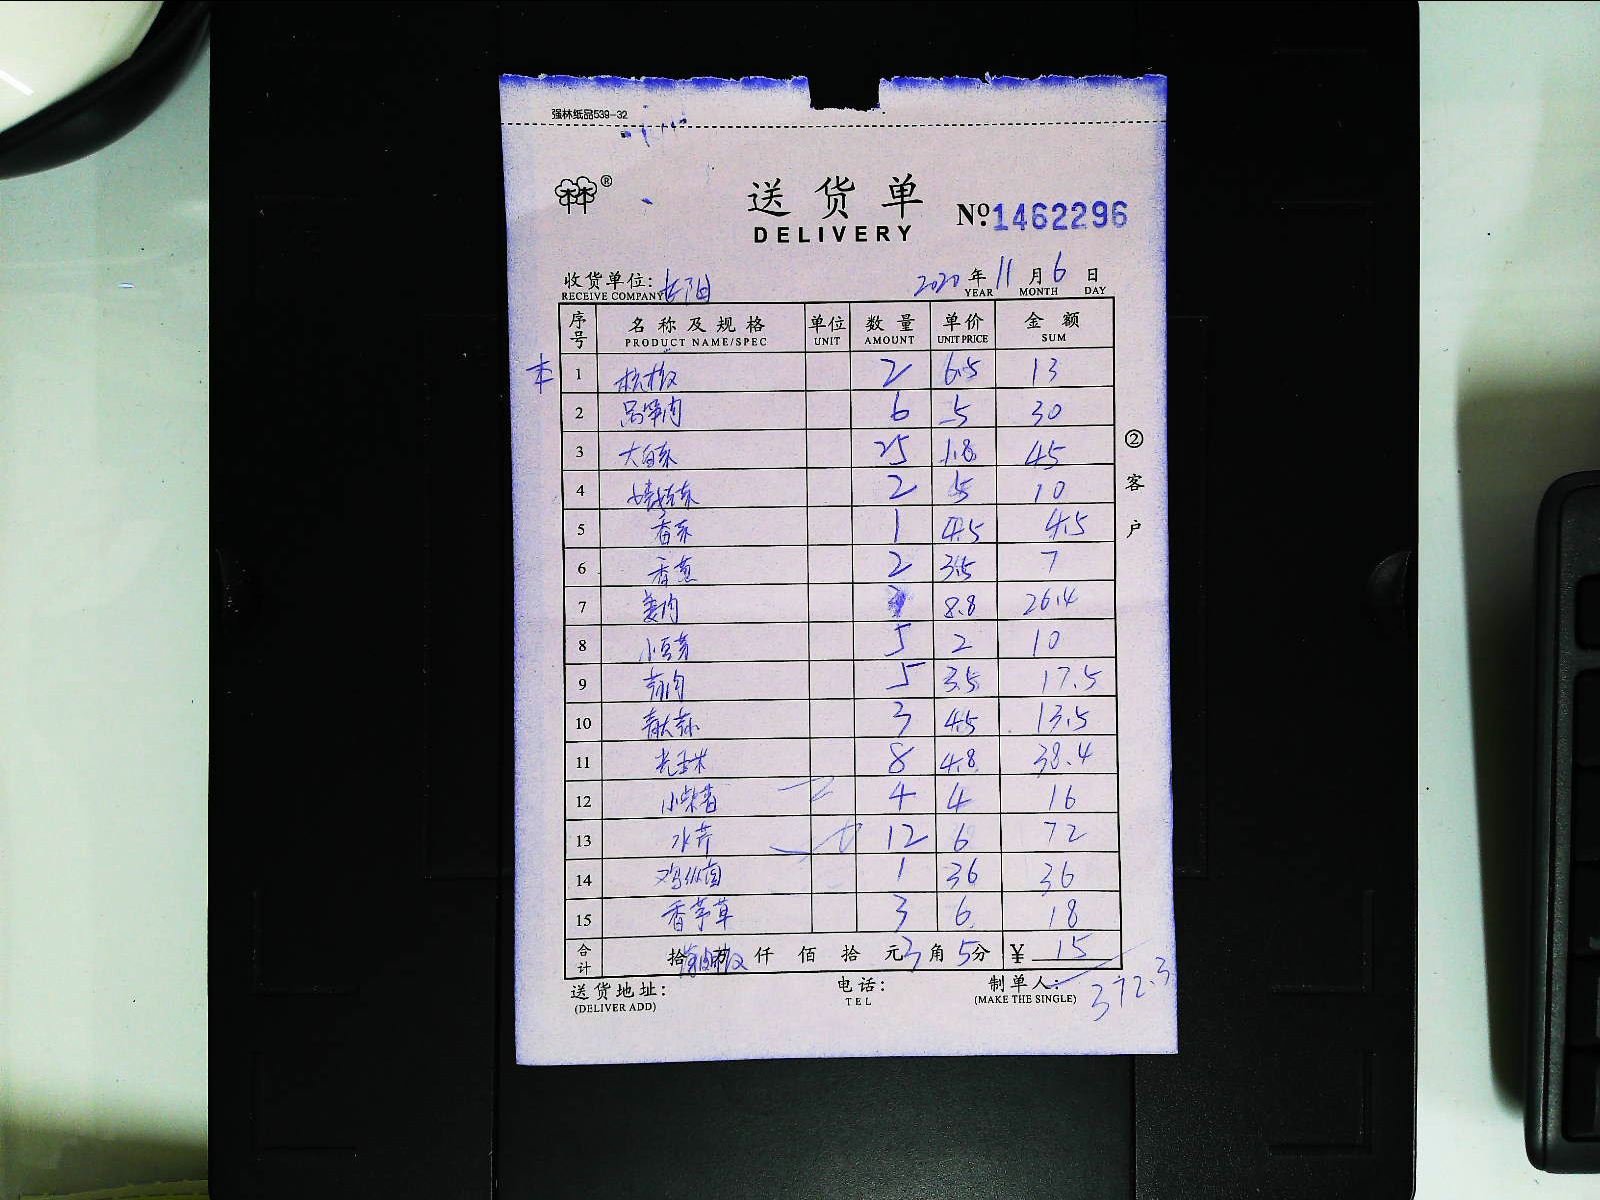 强林纸品539-32
®
送货单
DELIVERY
№ 1462296
收货单位: 2020 年 11 月 6 日
RECEIVE COMPANY YEAR MONTH DAY
序号 名称及规格 单位 数量 单价 金额
PRODUCT NAME/SPEC UNIT AMOUNT UNIT PRICE SUM
1 2 6.5 13
2 6 5 30
3 大白菜 25 1.8 45
4 2 5 10
5 香菜 1 4.5 4.5
6 香葱 2 3.5 7
7 姜肉 8.8 26.4
8 小豆芽 5 2 10
9 5 3.5 17.5
10 3 4.5 13.5
11 光玉米 8 4.8 38.4
12 小米椒 4 4 16
13 水芹 12 6 72
14 鸡纵菌 1 36 36
15 香茅草 3 6 18
合计 拾 仟 佰 拾 元 3 角 5 分 ¥ 15
送货地址: 电话: 制单人:
(DELIVER ADD) TEL (MAKE THE SINGLE)
372.3
②客户